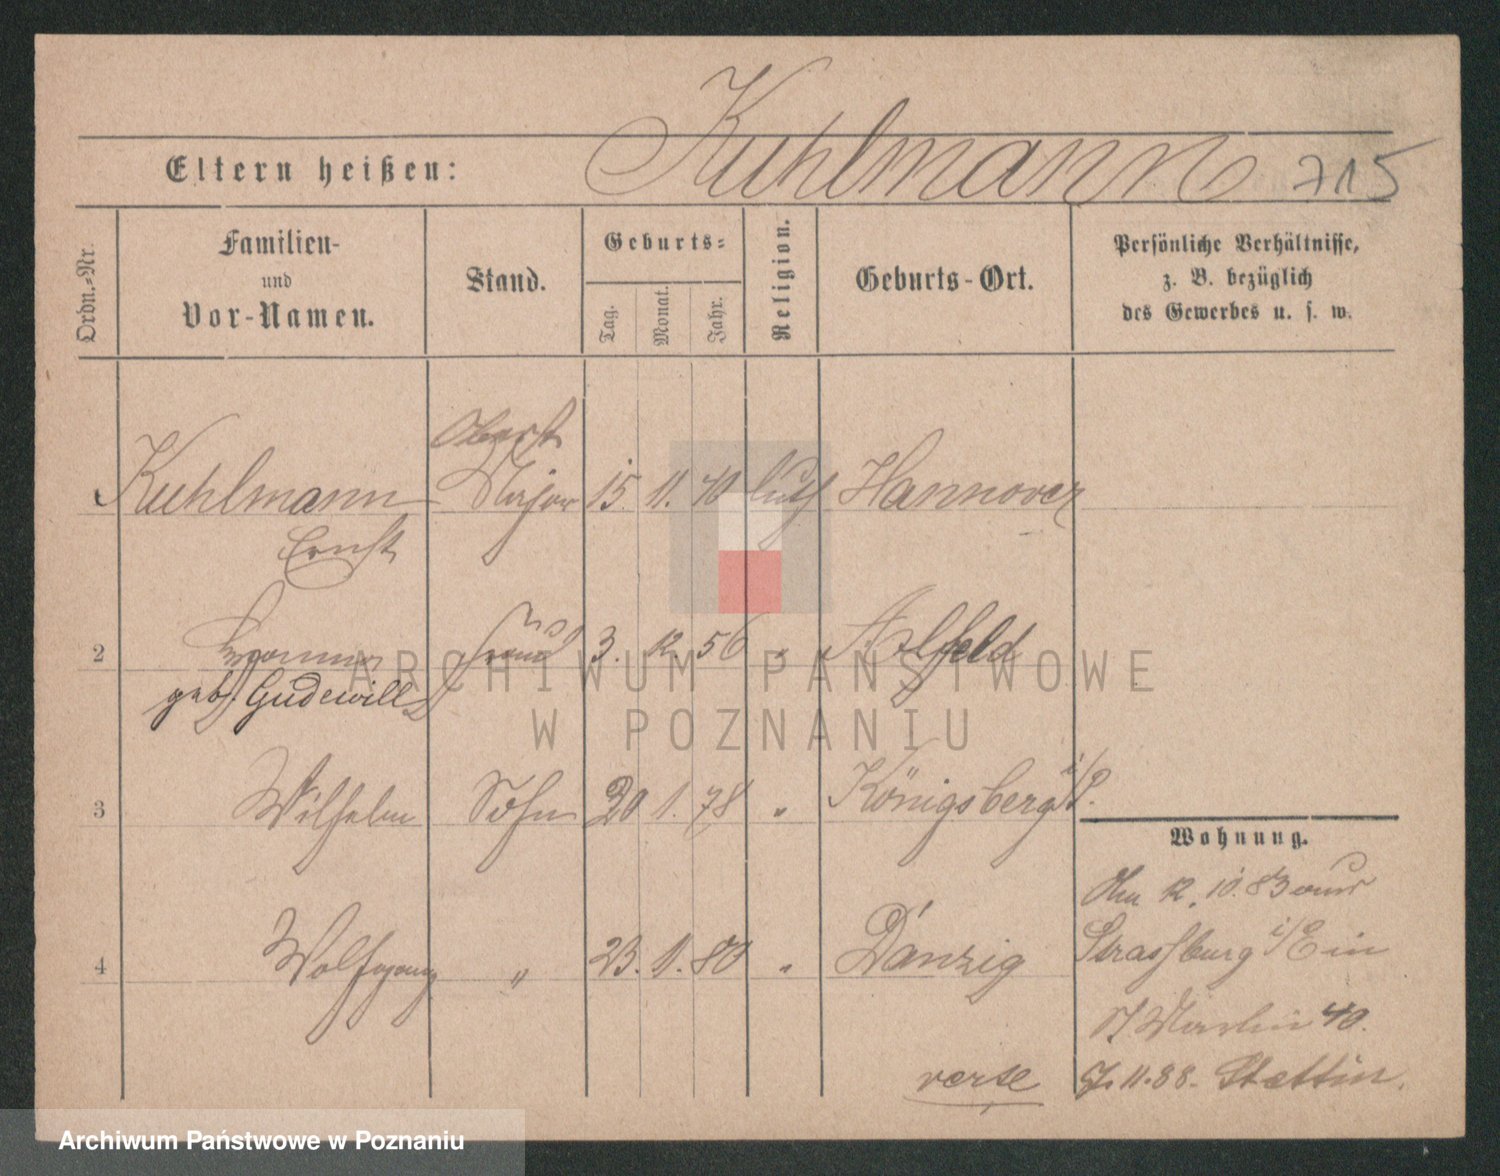 Kuhlmann 715
Eltern heißen:
Ordn.-Nr.
Familien-
und
Vor-Namen.
Stand.
Geburts-
Tag.
Monat.
Jahr.
Religion.
Geburts-Ort.
Persönliche Verhältnisse,
z. B. bezüglich
des Gewerbes u. s. w.
Oberst
1 Kuhlmann Major 15. 11. 40 luth Hannover
Ernst
2 Frau 3. 12. 56 " Alfeld
geb. Gudewill
3 Wilhelm Sohn 20 1. 78 " Königsberg i/P.
Wohnung.
4 Wolfgang " 23. 1. 80 " Danzig
12. 10. 83 aus
Strassburg i/E in
St Martin 40.
verte
11.88. Stettin.
ARCHIWUM PAŃSTWOWE
W POZNANIU
Archiwum Państwowe w Poznaniu